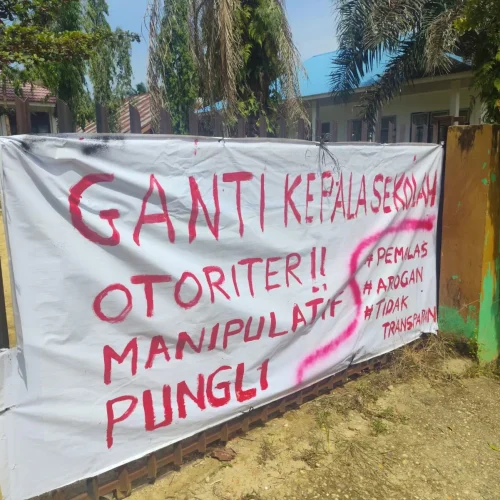 GANTI KEPALA SEKOLAH
OTORITER!!
MANIPULATIF
PUNGLI
# PEMALAS
# AROGAN
# TIDAK
TRANSPARAN